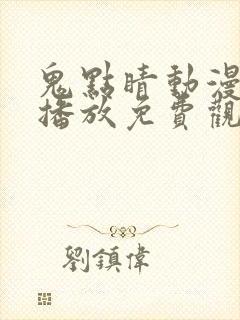 鬼點睛動漫
播放免費觀
劉鎮偉